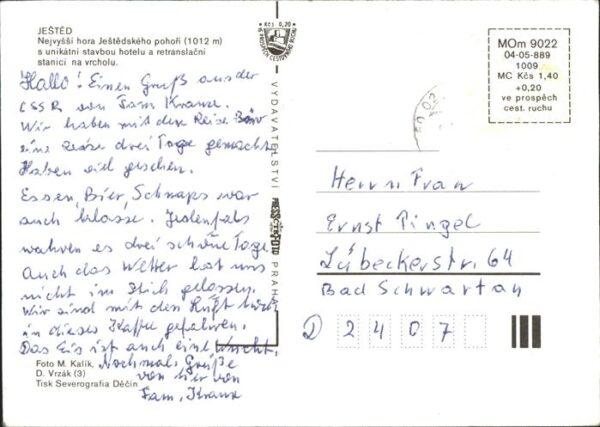 JEŠTĚD
Nejvyšší hora Ještědského pohoří (1012 m)
s unikátní stavbou hotelu a retranslační
stanicí na vrcholu.
Hallo! Einen Gruß aus der
CSSR von Fam Kranz.
Wir haben mit dem Reise Büro
eine Reise drei Tage gemacht
Haben viel gesehen.
Essen, Bier, Schnaps war
auch klasse. Jedenfals
wahren es drei schöne Tage
Auch das Wetter hat uns
nicht im Stich gelassen.
Wir sind mit den Lift hoch
in dieses Kaffe gefahren.
Das Eis ist auch eine Wucht.
Nochmals Grüße
von hier von
Fam, Kranz
Foto M. Kalík,
D. Vrzák (3)
Tisk Severografia Děčín
Kčs 0,20
VYDAVATELSTVÍ PRESSFOTO PRAHA
MOm 9022
04-05-889
1009
MC Kčs 1,40
+0,20
ve prospěch
cest. ruchu
Herrn Frau
Ernst Pingel
Lübeckerstr. 64
Bad Schwartau
D 2407